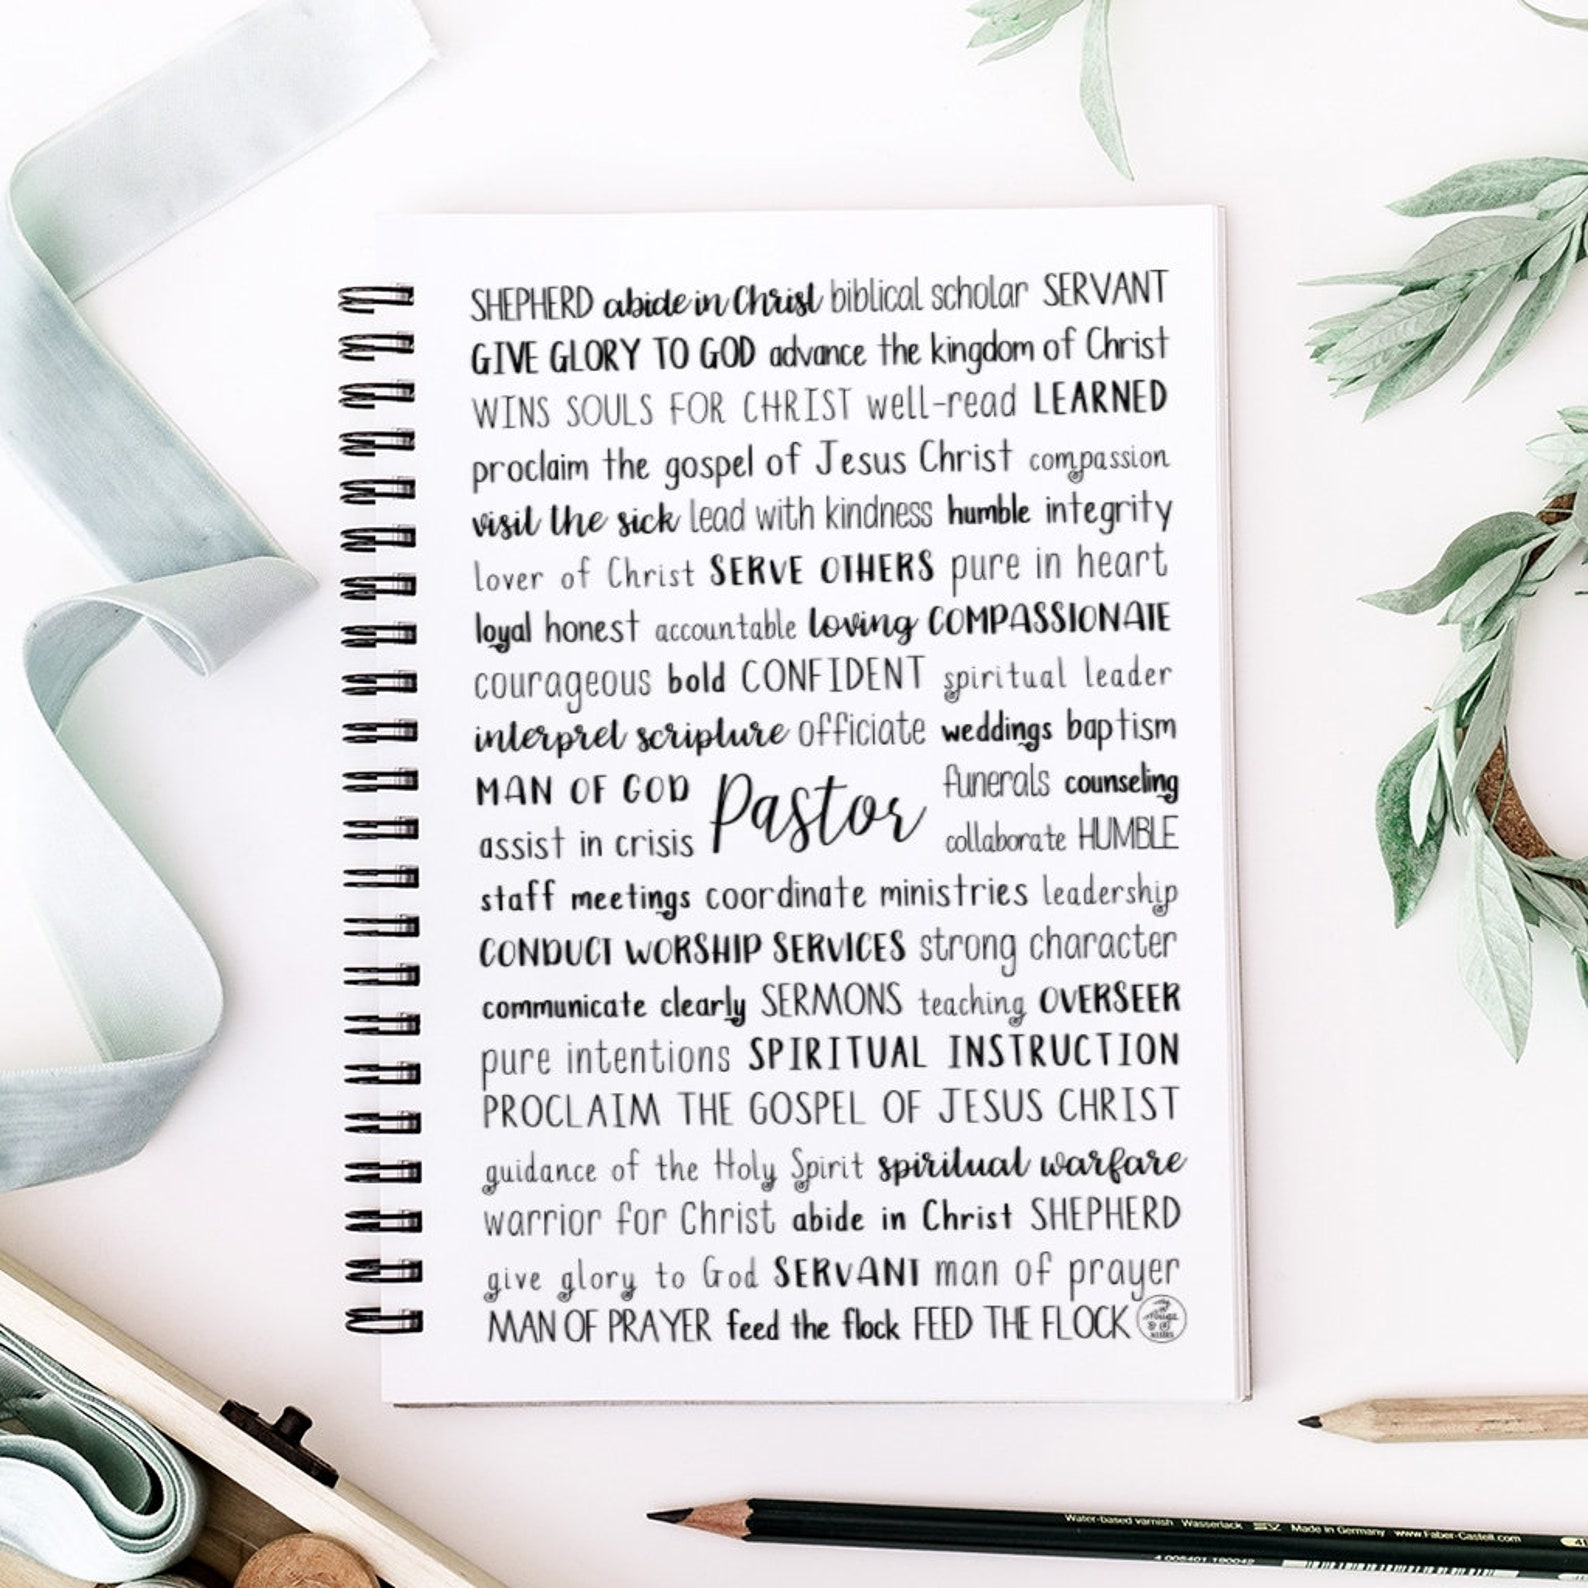 SHEPHERD abide in Christ biblical scholar SERVANT
GIVE GLORY TO GOD advance the kingdom of Christ
WINS SOULS FOR CHRIST well-read LEARNED
proclaim the gospel of Jesus Christ compassion
visit the sick lead with kindness humble integrity
lover of Christ SERVE OTHERS pure in heart
loyal honest accountable loving COMPASSIONATE
courageous bold CONFIDENT spiritual leader
interpret scripture officiate weddings baptism
MAN OF GOD Pastor funerals counseling
assist in crisis collaborate HUMBLE
staff meetings coordinate ministries leadership
CONDUCT WORSHIP SERVICES strong character
communicate clearly SERMONS teaching OVERSEER
pure intentions SPIRITUAL INSTRUCTION
PROCLAIM THE GOSPEL OF JESUS CHRIST
guidance of the Holy Spirit spiritual warfare
warrior for Christ abide in Christ SHEPHERD
give glory to God SERVANT man of prayer
MAN OF PRAYER feed the flock FEED THE FLOCK
Water-based varnish Wasserlack EV Made in Germany www.Faber-Castell.com
4 005401 190042